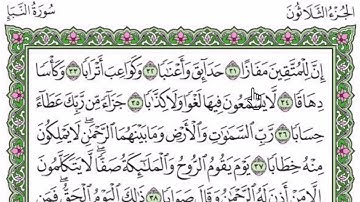 الجزء الثلاثون
سورة النبإ
إِنَّ لِلْمُتَّقِينَ مَفَازًا ۝٣١ حَدَآئِقَ وَأَعْنَٰبًا ۝٣٢ وَكَوَاعِبَ أَتْرَابًا ۝٣٣ وَكَأْسًا
دِهَاقًا ۝٣٤ لَّا يَسْمَعُونَ فِيهَا لَغْوًا وَلَا كِذَّٰبًا ۝٣٥ جَزَآءً مِّن رَّبِّكَ عَطَآءً
حِسَابًا ۝٣٦ رَّبِّ السَّمَٰوَٰتِ وَالْأَرْضِ وَمَا بَيْنَهُمَا الرَّحْمَٰنِ لَا يَمْلِكُونَ
مِنْهُ خِطَابًا ۝٣٧ يَوْمَ يَقُومُ الرُّوحُ وَالْمَلَٰٓئِكَةُ صَفًّا لَّا يَتَكَلَّمُونَ
إِلَّا مَنْ أَذِنَ لَهُ الرَّحْمَٰنُ وَقَالَ صَوَابًا ۝٣٨ ذَٰلِكَ الْيَوْمُ الْحَقُّ فَمَن